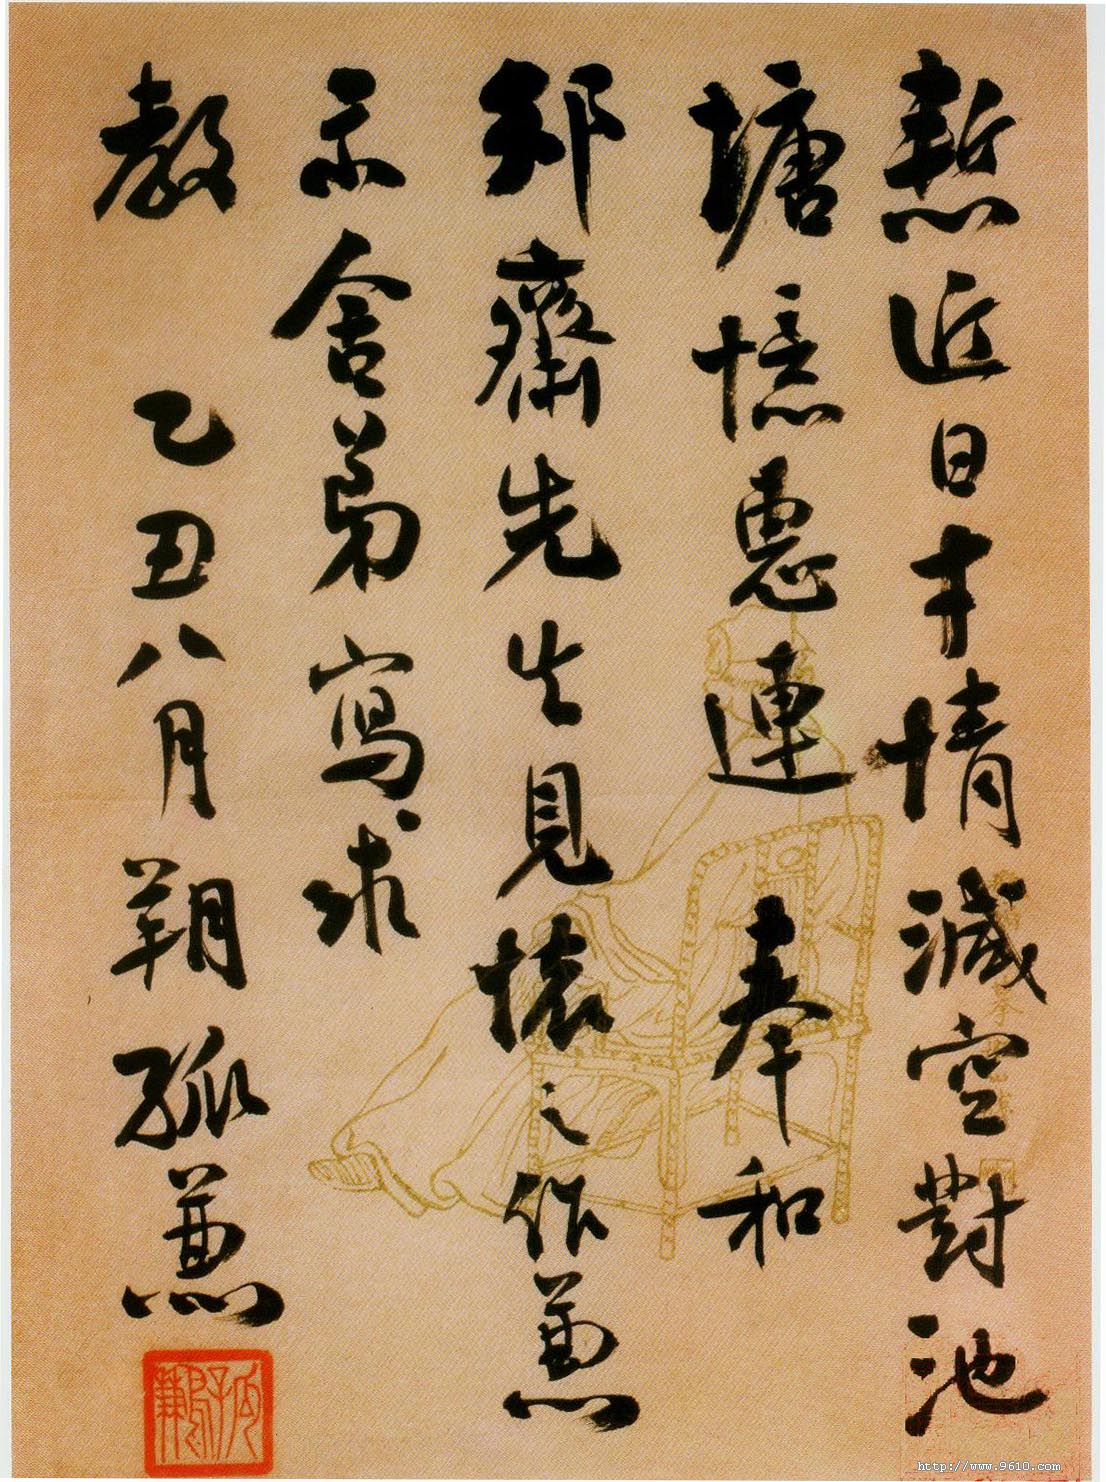 慙近日才情減空對池
塘憶惠連 奉和
齋先生見懷之作兼
示舍弟寫求
教 乙丑八月朔孤兼
孤鶼
http://www.9610.com